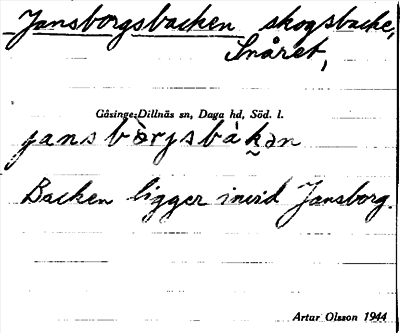 Jansborgsbacken skogsbacke,
Snåret,
Gåsinge-Dillnäs sn, Daga hd, Söd. l.
jansbòrjsbàk̬ən
Backen ligger invid Jansborg.
Artur Olsson 1944